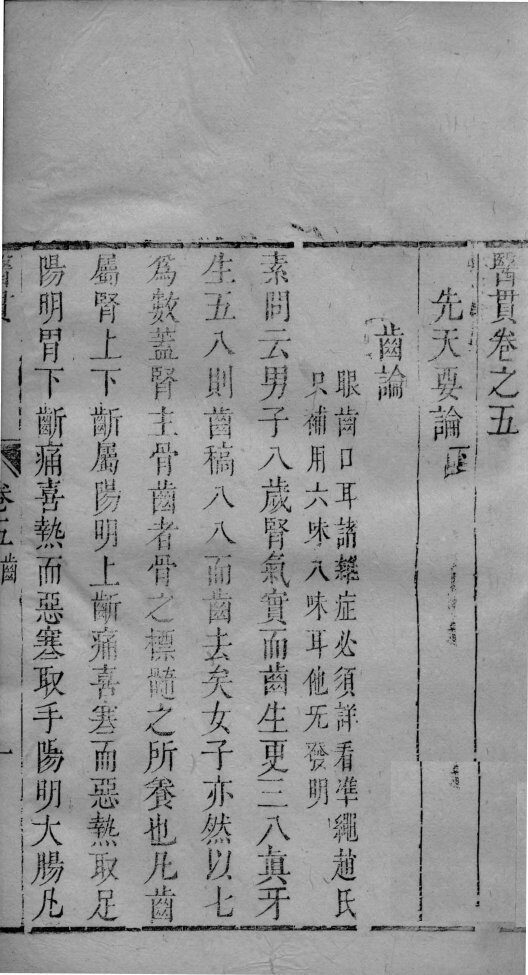 醫貫卷之五
先天要論下
齒論
眼齒口耳諸雜症必須詳看準繩趙氏
只補用六味八味耳他无發明
素問云男子八歲腎氣實而齒生更三八眞牙
生五八則齒槁八八而齒去矣女子亦然以七
爲數蓋腎主骨齒者骨之標髓之所養也凢齒
屬腎上下齗屬陽明上齗痛喜寒而惡熱取足
陽明胃下齗痛喜熱而惡寒取手陽明大腸凢
醫貫
卷五齒
一